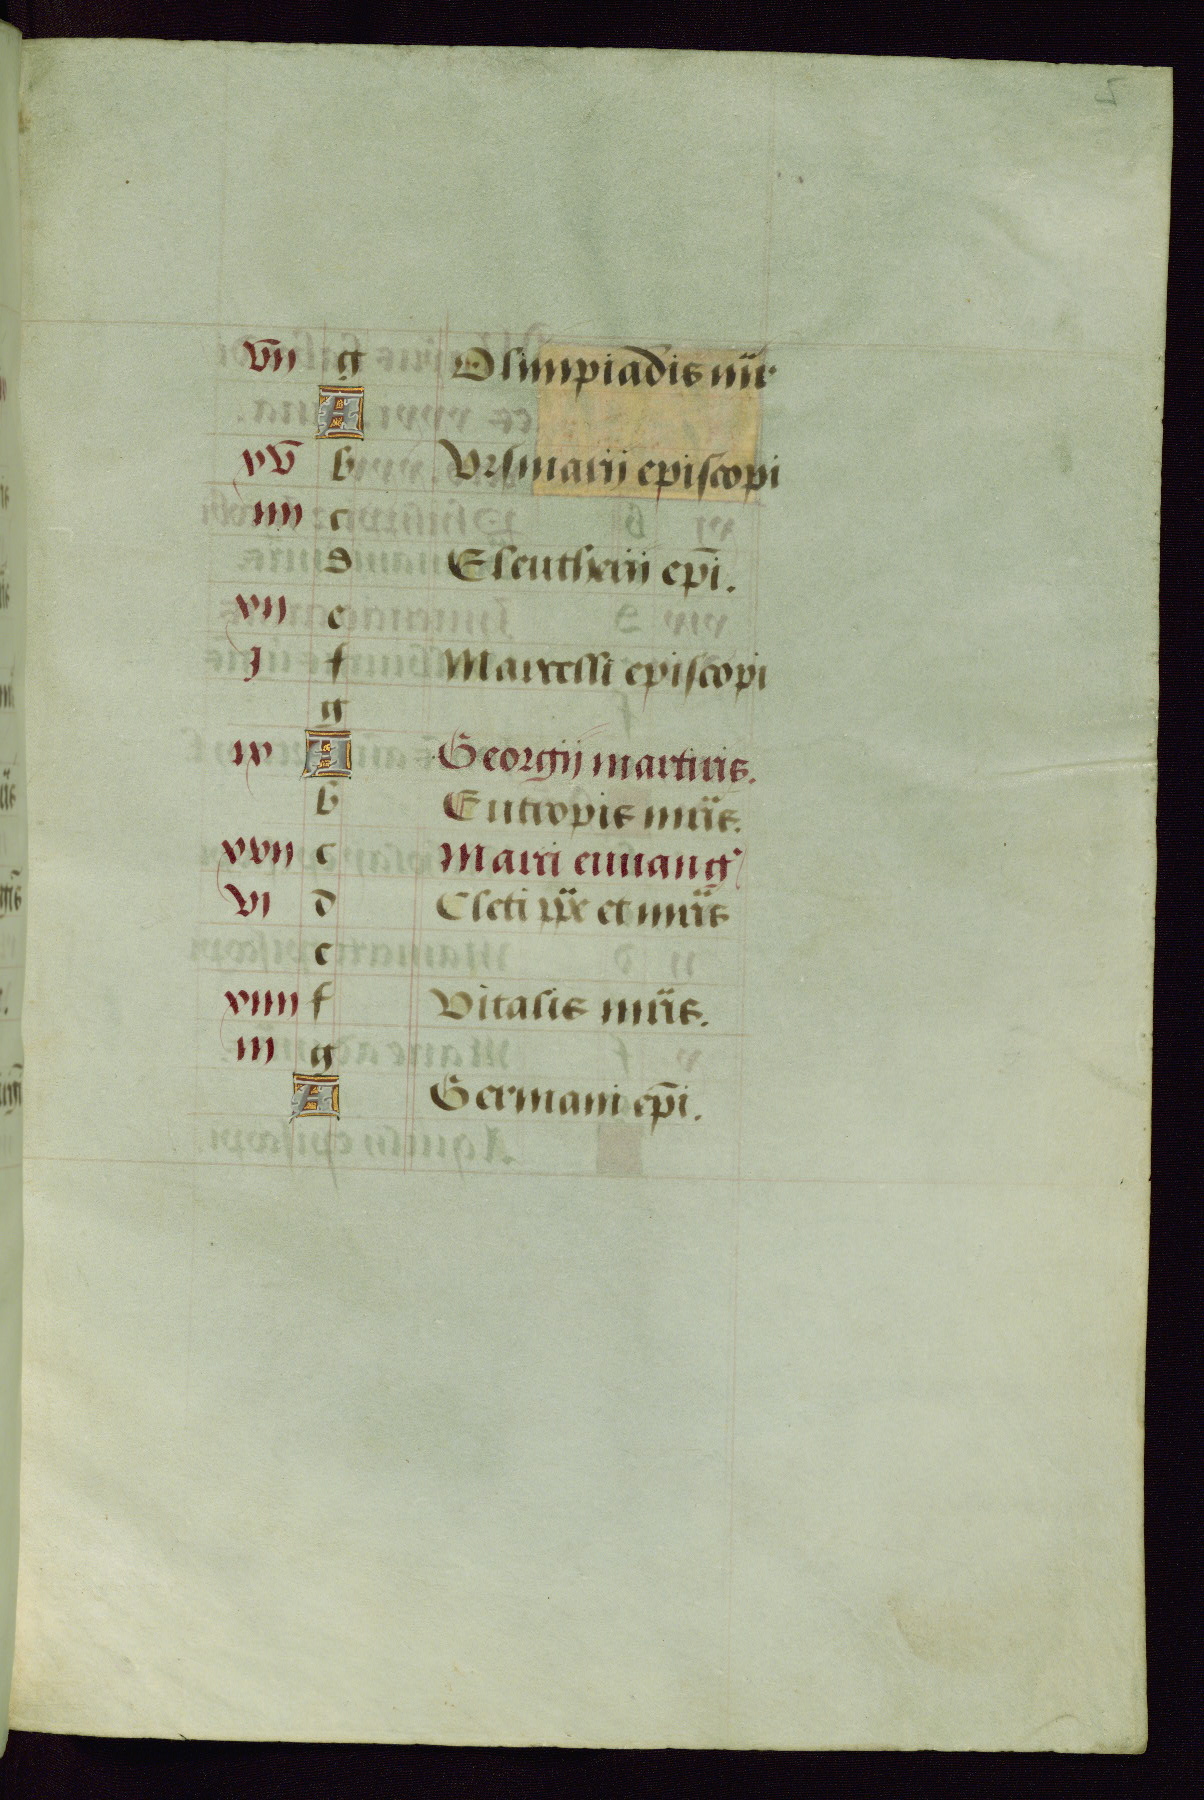 vii g Olimpiadis mr̄
A
xv b Vrsmarii episcopi
iiii c
d Eleutherii ep̄i.
xii e
j f Marcelli episcopi
g
ix A Georgij martiris.
b Eutropis mr̄is.
xvii c Marci euuang
vi d Cleti pp̄e et mr̄is
e
xiiii f Vitalis mr̄is.
iii g
A Germani ep̄i.